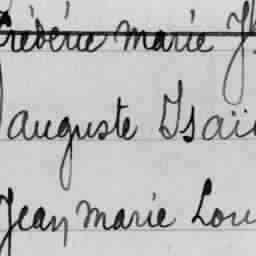 Frédéric Marie
Auguste Isaï
Jean Marie Lou